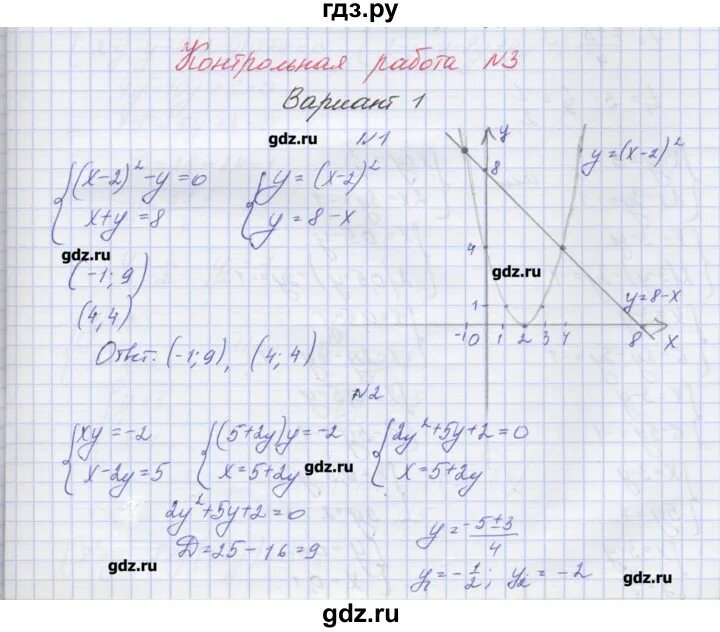 гдз.ру
Контрольная работа №3
Вариант 1
gdz.ru
№1
{(x-2)² - y = 0
x+y = 8
{y = (x-2)²
y = 8 - x
gdz.ru
(-1; 9)
(4; 4)
Ответ: (-1; 9), (4; 4)
y
8
y = (x-2)²
4
gdz.ru
1
y = 8 - x
-1 0 1 2 3 4 8 x
№2
{xy = -2
x - 2y = 5
{(5+2y)y = -2
x = 5+2y
{2y² + 5y + 2 = 0
x = 5+2y
gdz.ru
2y² + 5y + 2 = 0
D = 25 - 16 = 9
y = (-5 ± 3)/4
y₁ = -1/2; y₂ = -2
gdz.ru
gdz.ru
gdz.ru